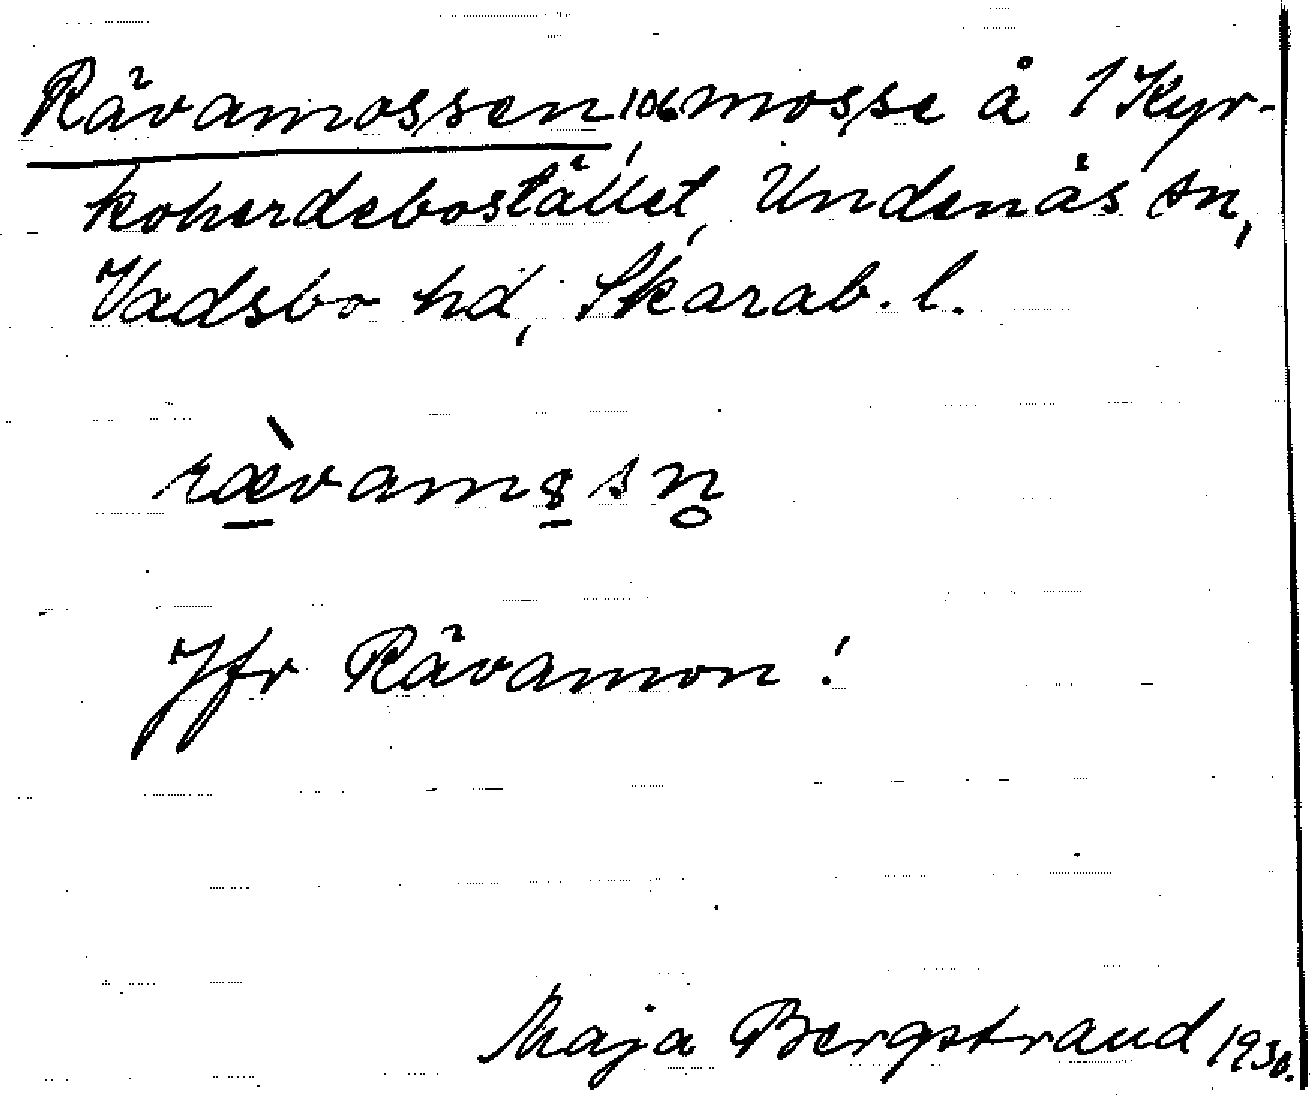 Rävamossen, 106 mosse å 1 Kyr-
koherdebostället, Undenäs sn,
Vadsbo hd, Skarab. l.
rævamosn̥
Jfr Rävamon!
Maja Bergstrand 1930.